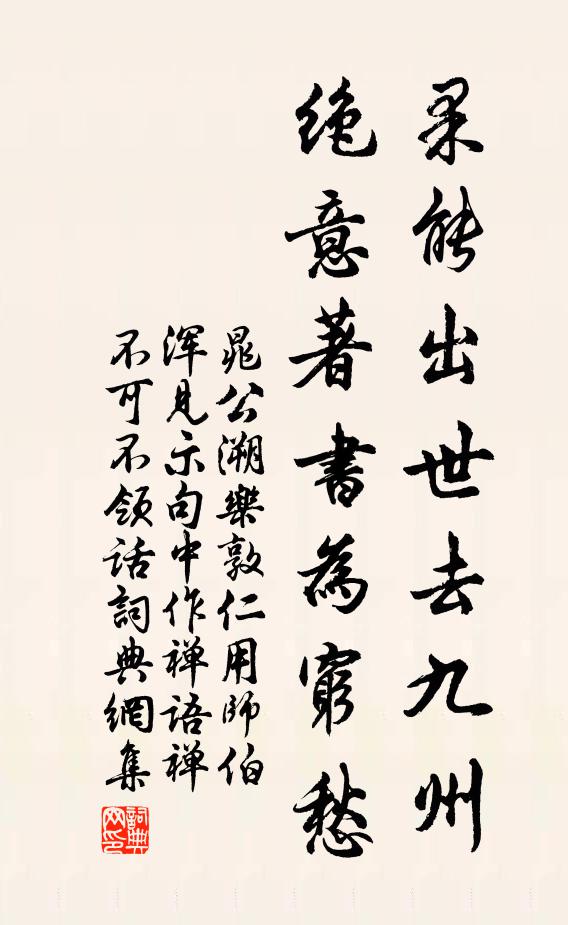 果能出世去九州
絶意著書為窮愁
晁公溯樂敦仁用師伯
渾見示句中作禅語禅
不可不領話詞典網集
詞典
网印